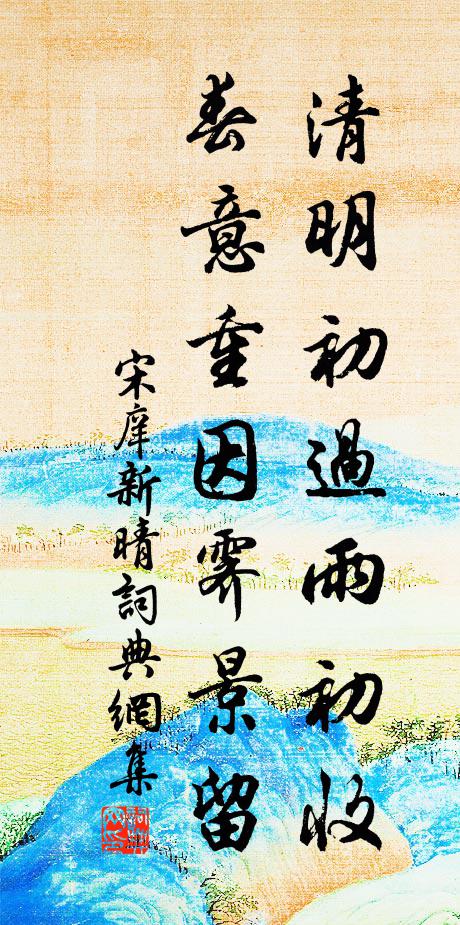 清明初過雨初收
春意重因霽景留
宋庠新晴詞典網集